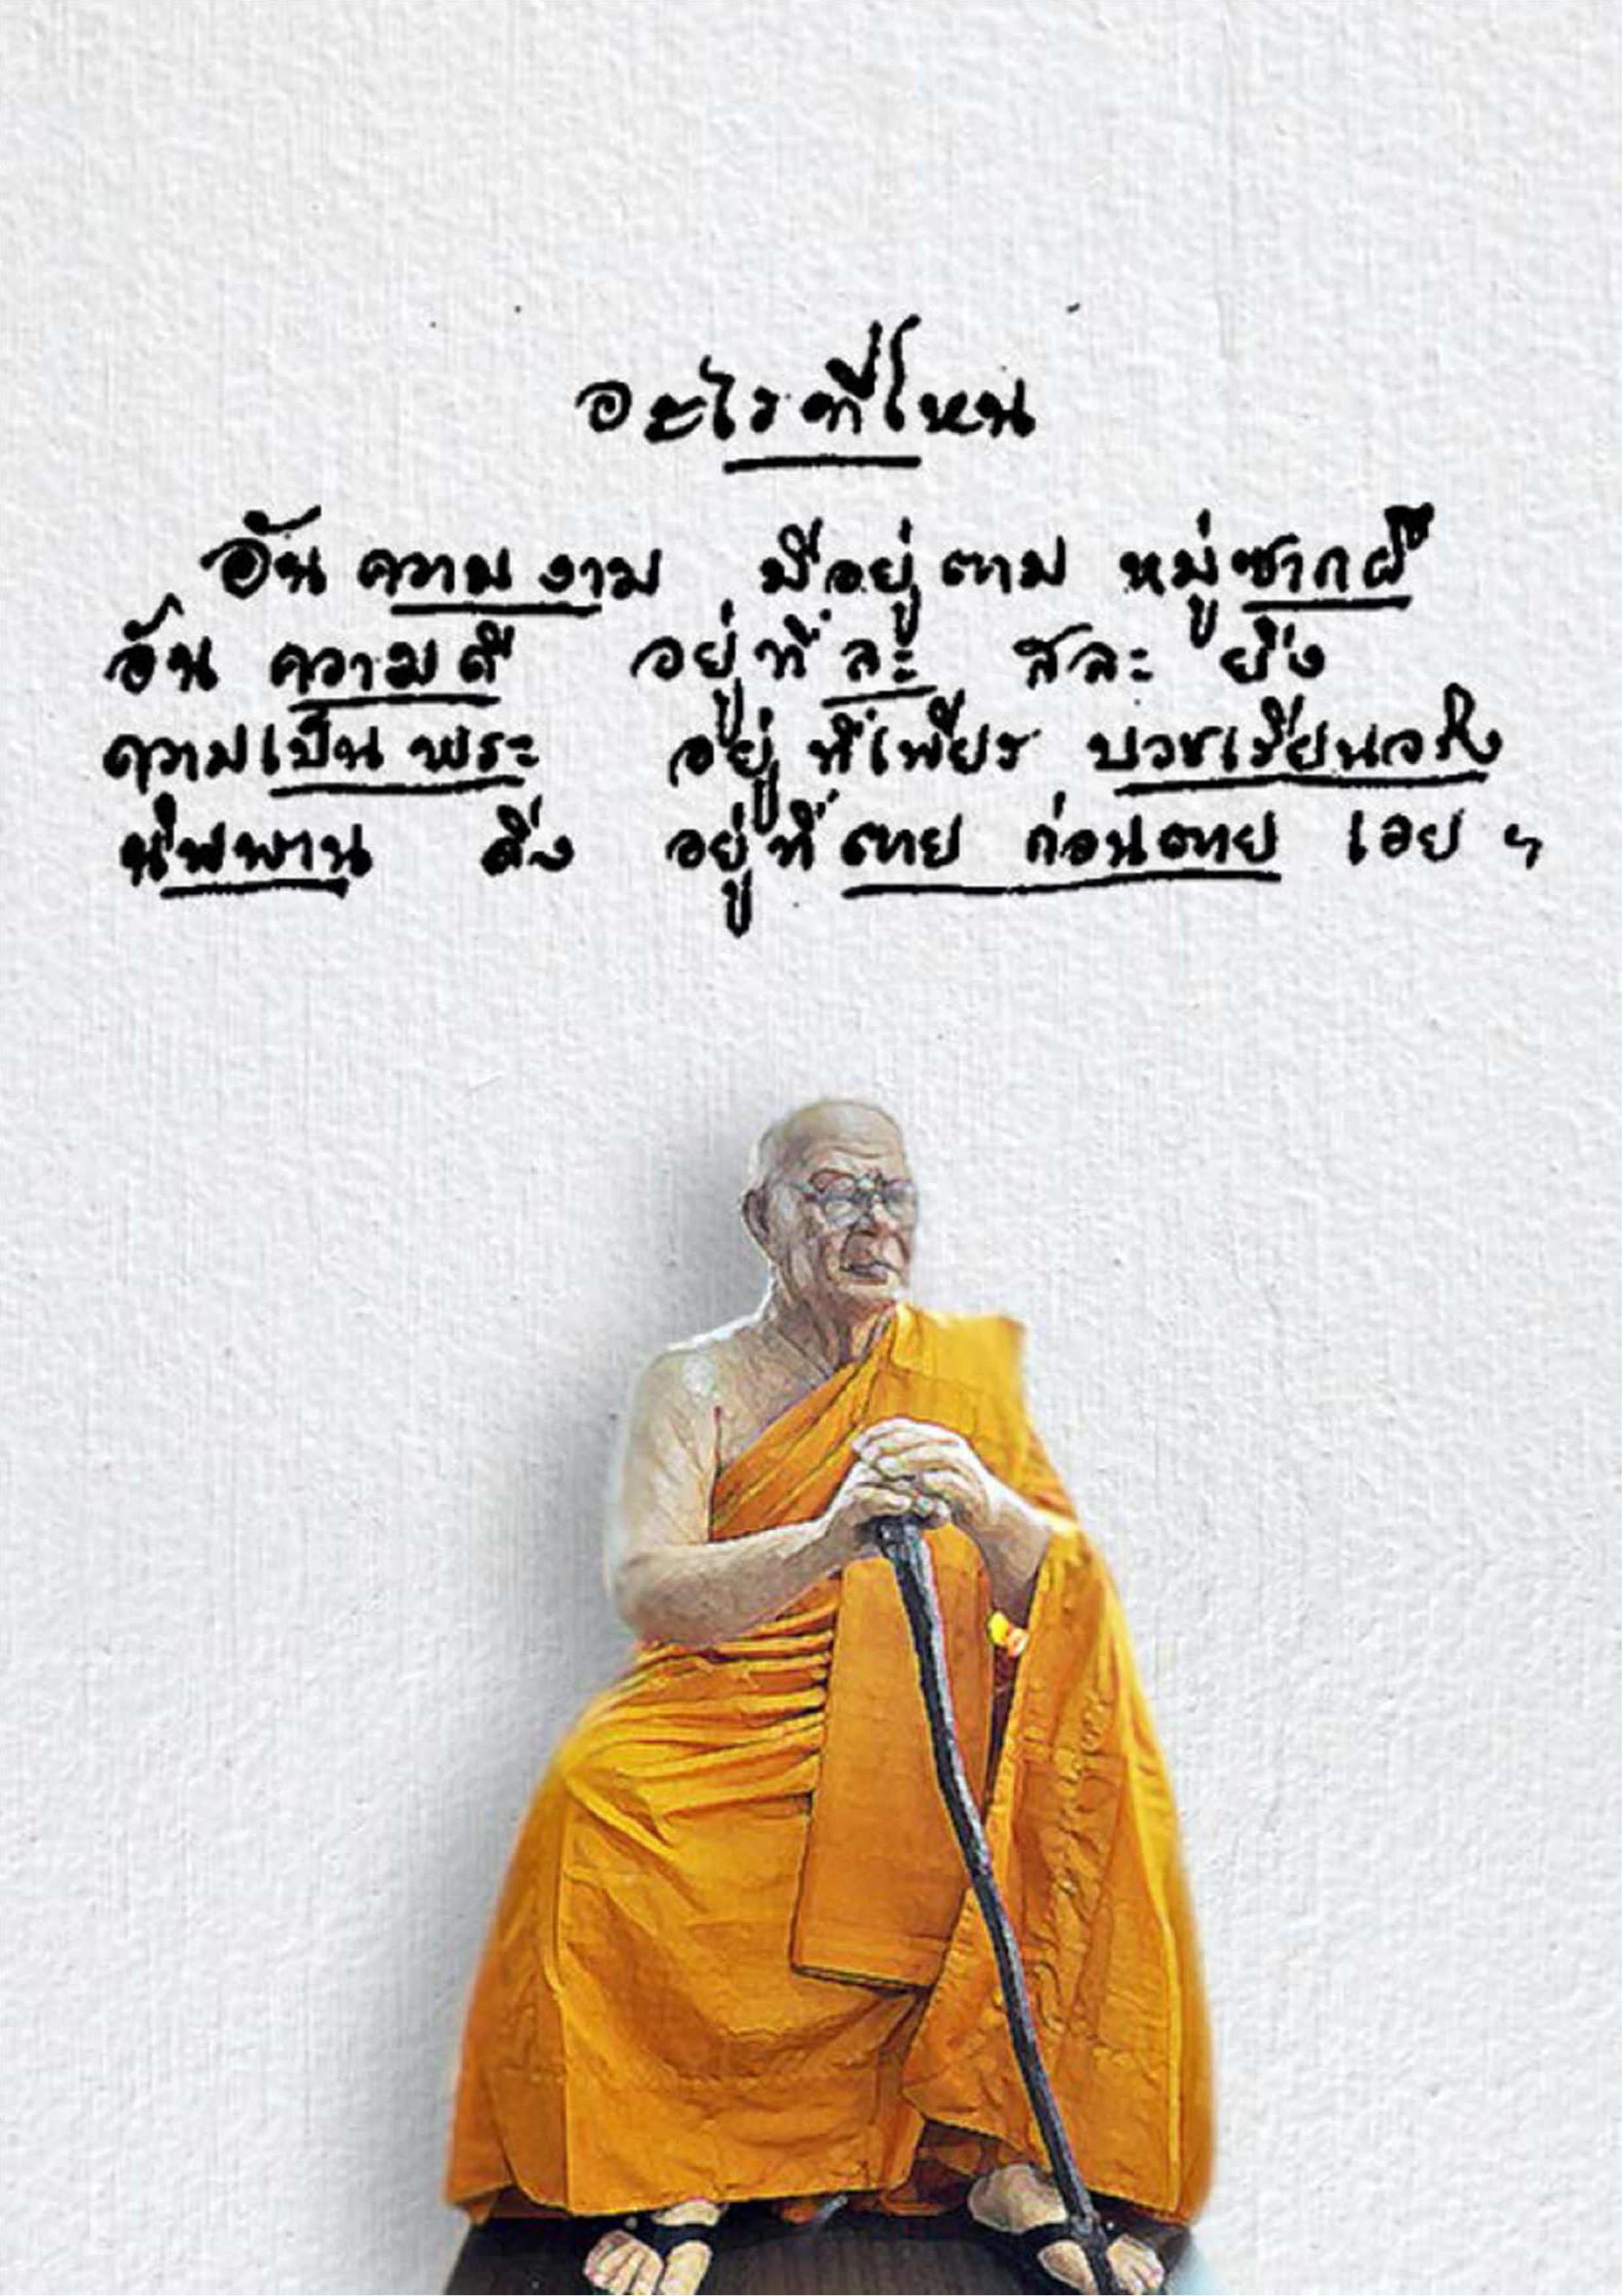 อะไรที่ไหน
อันความงาม มีอยู่ตาม หมู่ซากผี
อัน ความดี อยู่ที่ละ สละ ยิ่ง
ความเป็นพระ อยู่ที่เพียร บวชเรียนจริง
นิพพาน ดิ่ง อยู่ที่ตาย ก่อนตาย เอย ฯ